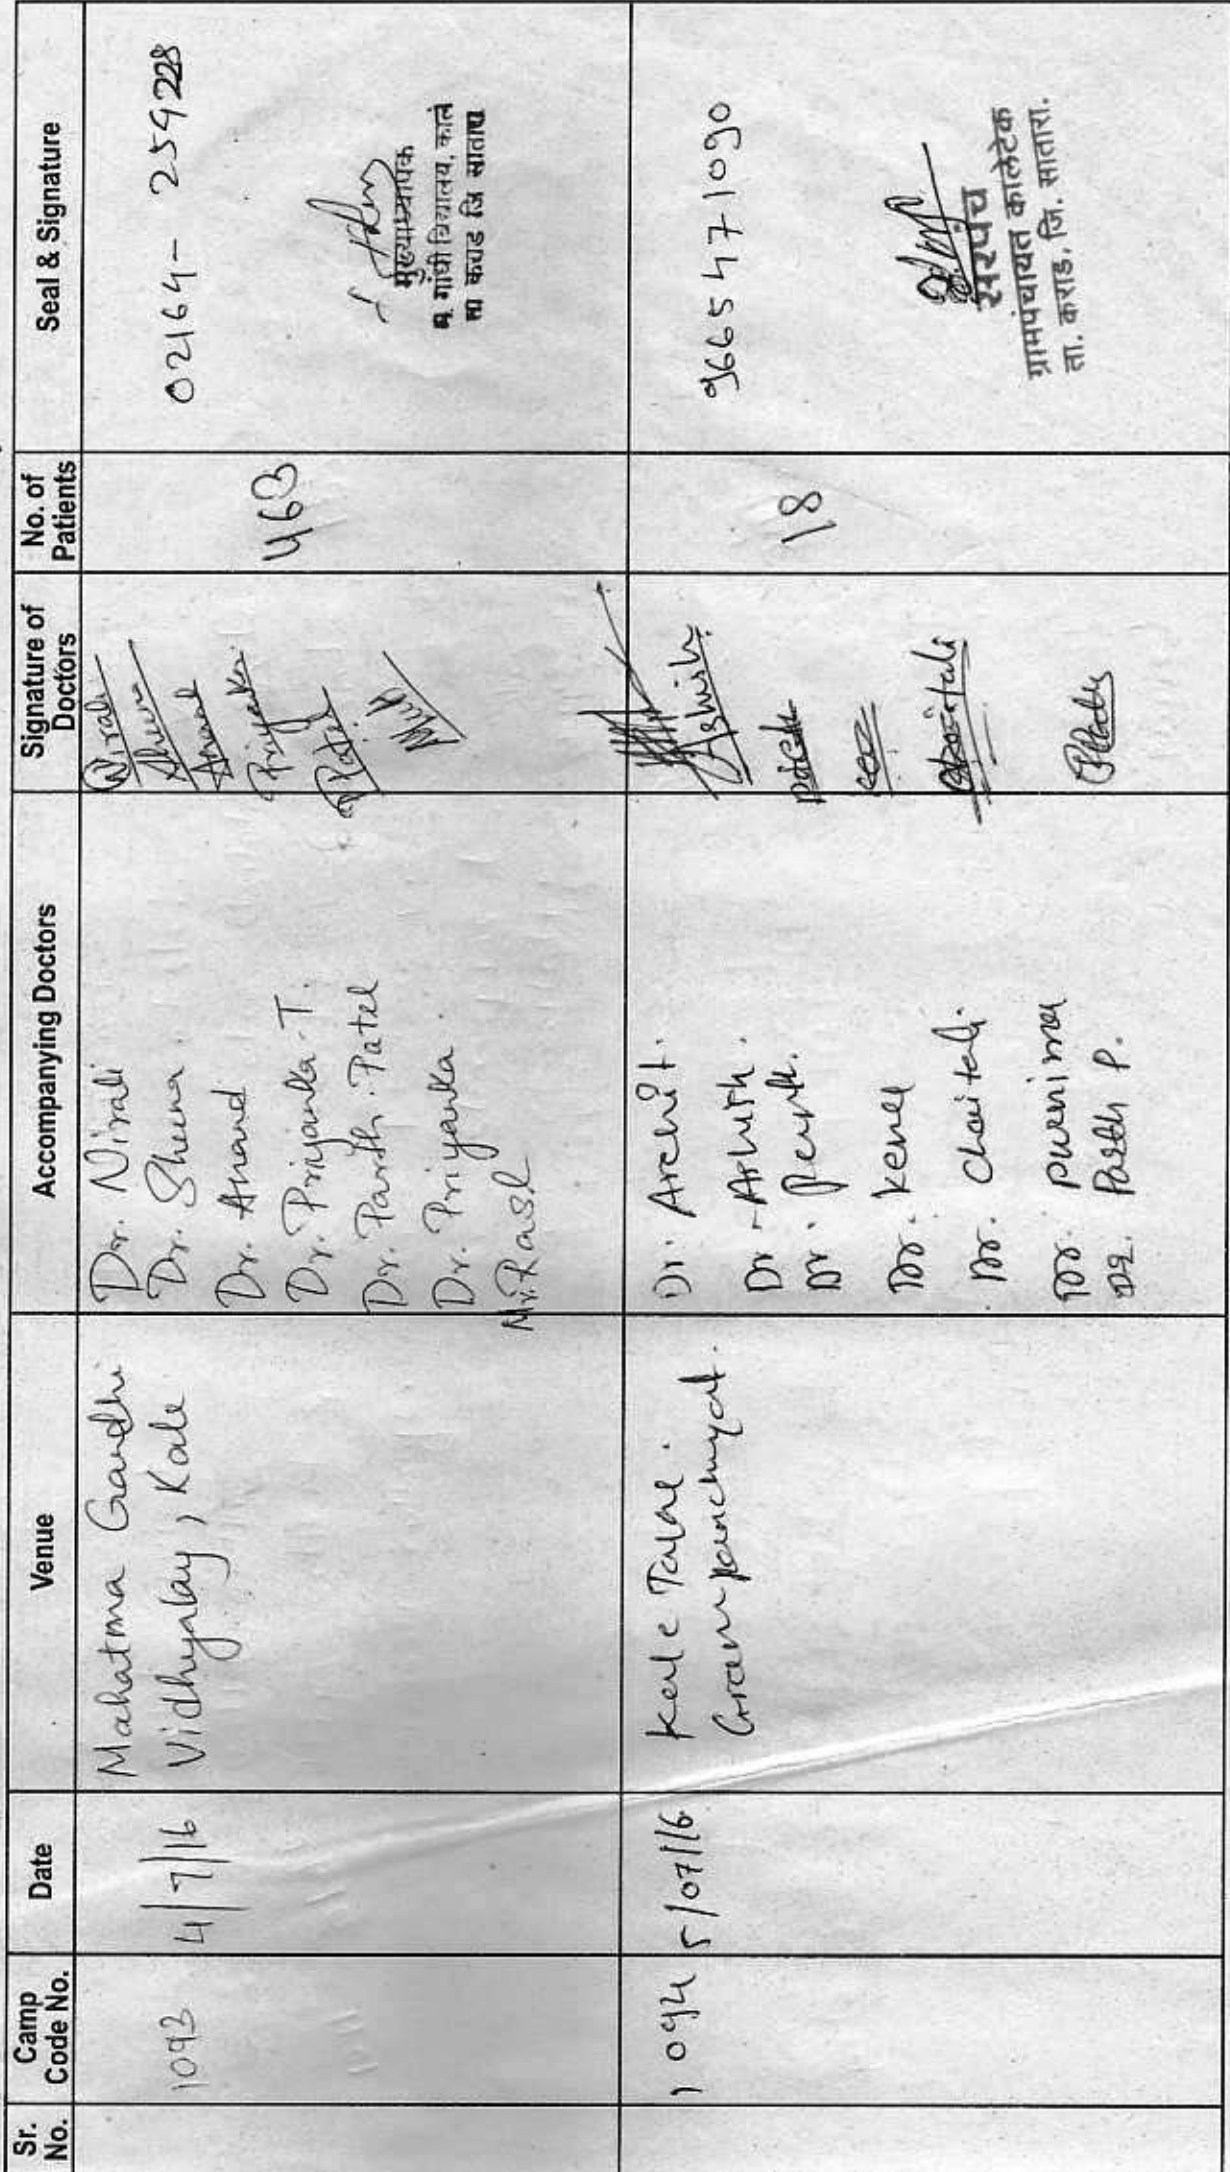 Sr. No.
Camp Code No.
Date
Venue
Accompanying Doctors
Signature of Doctors
No. of Patients
Seal & Signature
1093
4/7/16
Mahatma Grandhi
Vidhyalay, Kale
Dr. Nirali
Dr. Shena
Dr. Anand
Dr. Priyanka. T.
Dr. Parth. Patel
Dr. Priyanka.
Nirali
Anand
Priyanka
PPatel
463
02164- 259228
मुख्याध्यापक
म. गांधी विद्यालय, काले
ता कराड जि सातारा
1094
5/07/16
Kale
Grampanchayat.
Dr. Archit.
Dr. Ashish.
Dr. Parth.
Dr. Chaitali.
Dr. Purnima
Dr. Parth P.
Ashish.
Chaitali
18
9665471090
सरपंच
ग्रामपंचायत कालेटेक
ता. कराड, जि. सातारा.